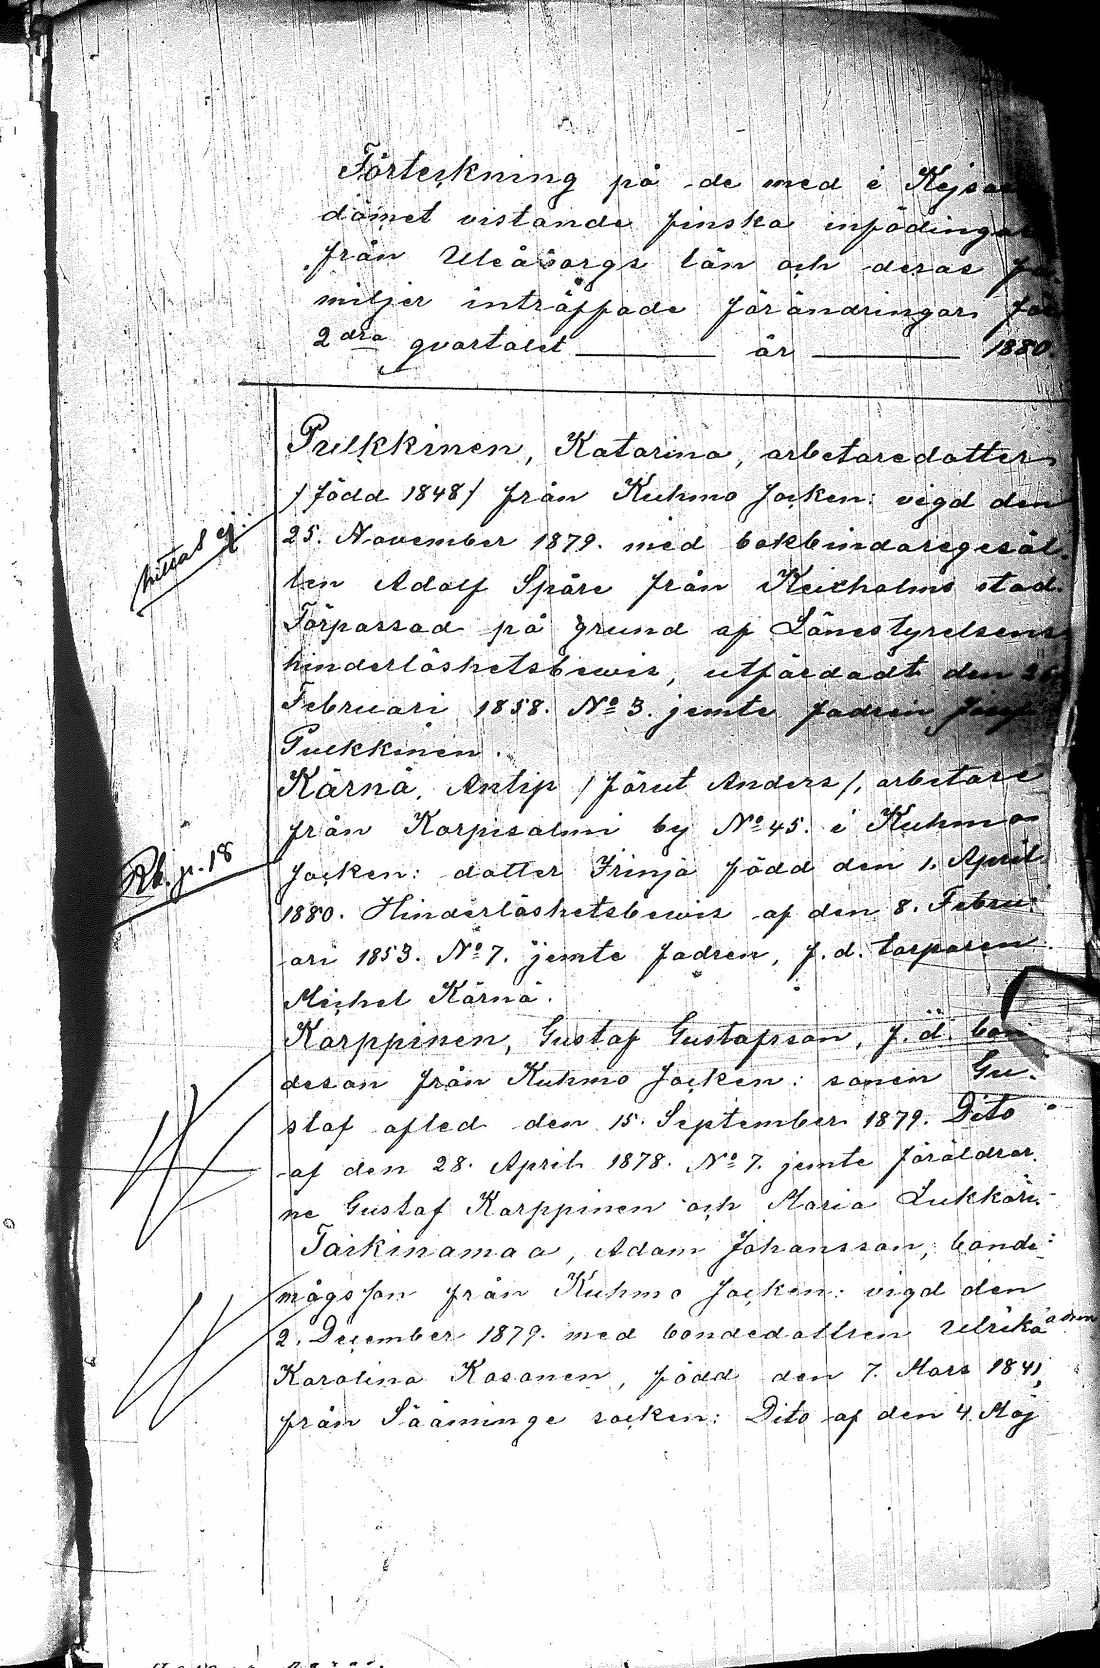 Förteckning på de med i Kejsar
dömet vistande finska infödingar
från Uleåborgs län och deras fa
miljer inträffade förändringar för
2dra qvartalet ——— år ——— 1880.
Pulkkinen, Katarina, arbetaredotter
/född 1848/ från Kuhmo socken: vigd den
hittas ej.
25. November 1879. med bokbindaregesäl-
len Adolf Spåre från Kexholms stad.
Förpassad på grund af Länestyrelsens
hinderlöshetsbewis, utfärdadt den 26
Februari 1858. No 3. jemte fadren
Pulkkinen.
Kärnä, Antip /förut Anders/, arbetare
från Korpisalmi by No 45. i Kuhmo
Rb. p. 18
socken: dotter Irinja född den 1. April
1880. Hinderlöshetsbewis af den 8. Febru-
ari 1853. No 7. jemte fadren, f. d. torparen
Michel Kärnä.
Karppinen, Gustaf Gustafsson, f. d. bon
deson från Kuhmo socken: sonen Gu-
staf afled den 15. September 1879. Dito
af den 28. April 1878. No 7. jemte föräldrar-
ne Gustaf Karppinen och Maria Lukkari.
Tarkinamaa, Adam Johansson, bonde-
mågsson från Kuhmo socken: vigd den
2. December 1879. med bondedottren Ulrika
Karolina Kosonen, född den 7. Mars 1841,
från Sääminge socken: Dito af den 4 Maj